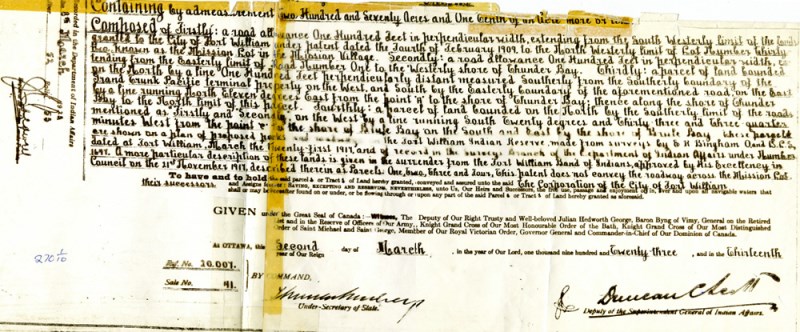 Containing by admeasurement Two Hundred and Seventy Acres and One Tenth of an Acre more or less
Composed of Firstly: a road allowance One Hundred feet in perpendicular width, extending from the South Westerly limit of the lands
granted to the City of Fort William under patent dated the Fourth of February 1909, to the North Westerly limit of Lot Number Thirty
two, known as the Mission Lot in the Mission Village. Secondly: a road allowance One Hundred feet in perpendicular width, ex
tending from the Easterly limit of Road Number One to the Westerly shore of Thunder Bay. Thirdly: a parcel of land bounded
on the North by a line One Hundred feet perpendicularly distant measured Southerly from the Southerly boundary of the
Grand Trunk Pacific terminal property on the West and South by the Easterly boundary of the aforementioned road, on the East
by a line running North Eleven degrees East from the point "A" to the shore of Thunder Bay; thence along the shore of Thunder
Bay to the North limit of this parcel. Fourthly: a parcel of land bounded on the North by the Southerly limit of the roads
mentioned as Firstly and Secondly, on the West by a line running South Twenty degrees and Thirty three and Three quarter
minutes West from the point to the shore of Brule Bay on the South and East by the shore of Brule Bay. parcels
are shown on a plan of proposed parks the Fort William Indian Reserve, made from surveys by E H Bingham and O.L.S.,
dated at Fort William, March the Twenty-first 1917, and of record in the Survey Branch of the Department of Indian Affairs under Number
A more particular description of these lands is given in the surrender from the Fort William Band of Indians, approved by His Excellency in
Council on the 21st November 1917, described therein as Parcels One, Two, Three and Four. This patent does not convey the roadway across the Mission Lot.
To have and to hold the said parcel or Tract of Land hereby granted, conveyed and assured unto the said The Corporation of the City of Fort William
their successors and Assigns forever; SAVING, EXCEPTING AND RESERVING, NEVERTHELESS, unto Us, Our Heirs and Successors, the free use, passage and enjoyment of, in, over and upon all navigable waters that
shall or may be hereafter found on or under, or be flowing through or upon any part of the said Parcel or Tract of Land hereby granted as aforesaid.
GIVEN under the Great Seal of Canada: Witness, The Deputy of Our Right Trusty and Well-beloved Julian Hedworth George, Baron Byng of Vimy, General on the Retired
List and in the Reserve of Officers of Our Army, Knight Grand Cross of Our Most Honourable Order of the Bath, Knight Grand Cross of Our Most Distinguished
Order of Saint Michael and Saint George, Member of Our Royal Victorian Order, Governor General and Commander-in-Chief of Our Dominion of Canada.
At OTTAWA, this Second day of March, in the year of Our Lord, one thousand nine hundred and Twenty three, and in the Thirteenth
year of Our Reign
Ref. No. 10.007.
Sale No. 41.
BY COMMAND,
Under-Secretary of State.
Duncan C Scott
Deputy of the Superintendent General of Indian Affairs.
Recorded in the Department of Indian Affairs